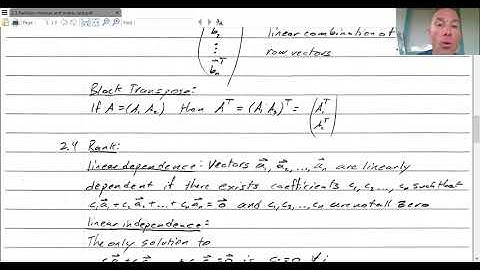 b₂ linear combination of
⋮ row vectors
b⃗ₙᵀ
Block Transpose:
If A = (A₁ A₂) then Aᵀ = (A₁ A₂)ᵀ = (A₁ᵀ
A₂ᵀ)
2.4 Rank:
linear dependence: Vectors a⃗₁, a⃗₂, ..., a⃗ₙ are linearly
dependent if there exists coefficients c₁, c₂, ..., cₙ such that
c₁a⃗₁ + c₂a⃗₂ + ... + cₙa⃗ₙ = 0⃗ and c₁, c₂, ..., cₙ are not all zero
linear independence:
The only solution to